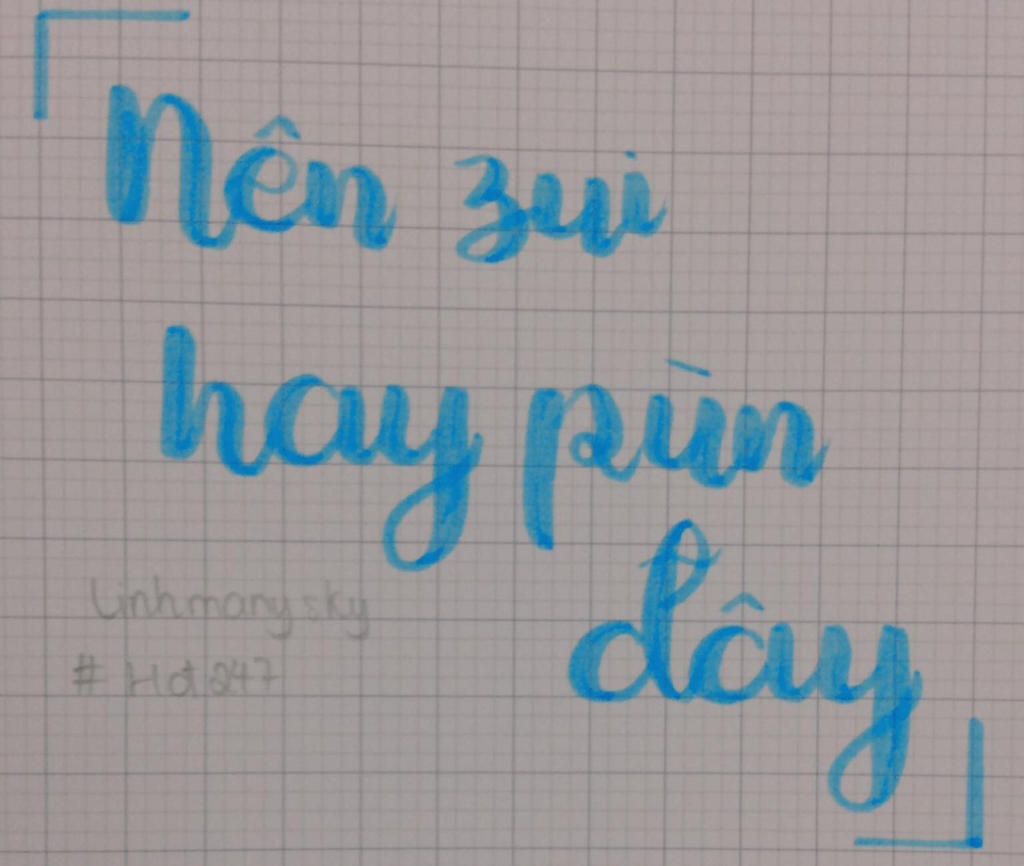 Nên zui
hay pùn
đây
Linhmarysky
# Hd247